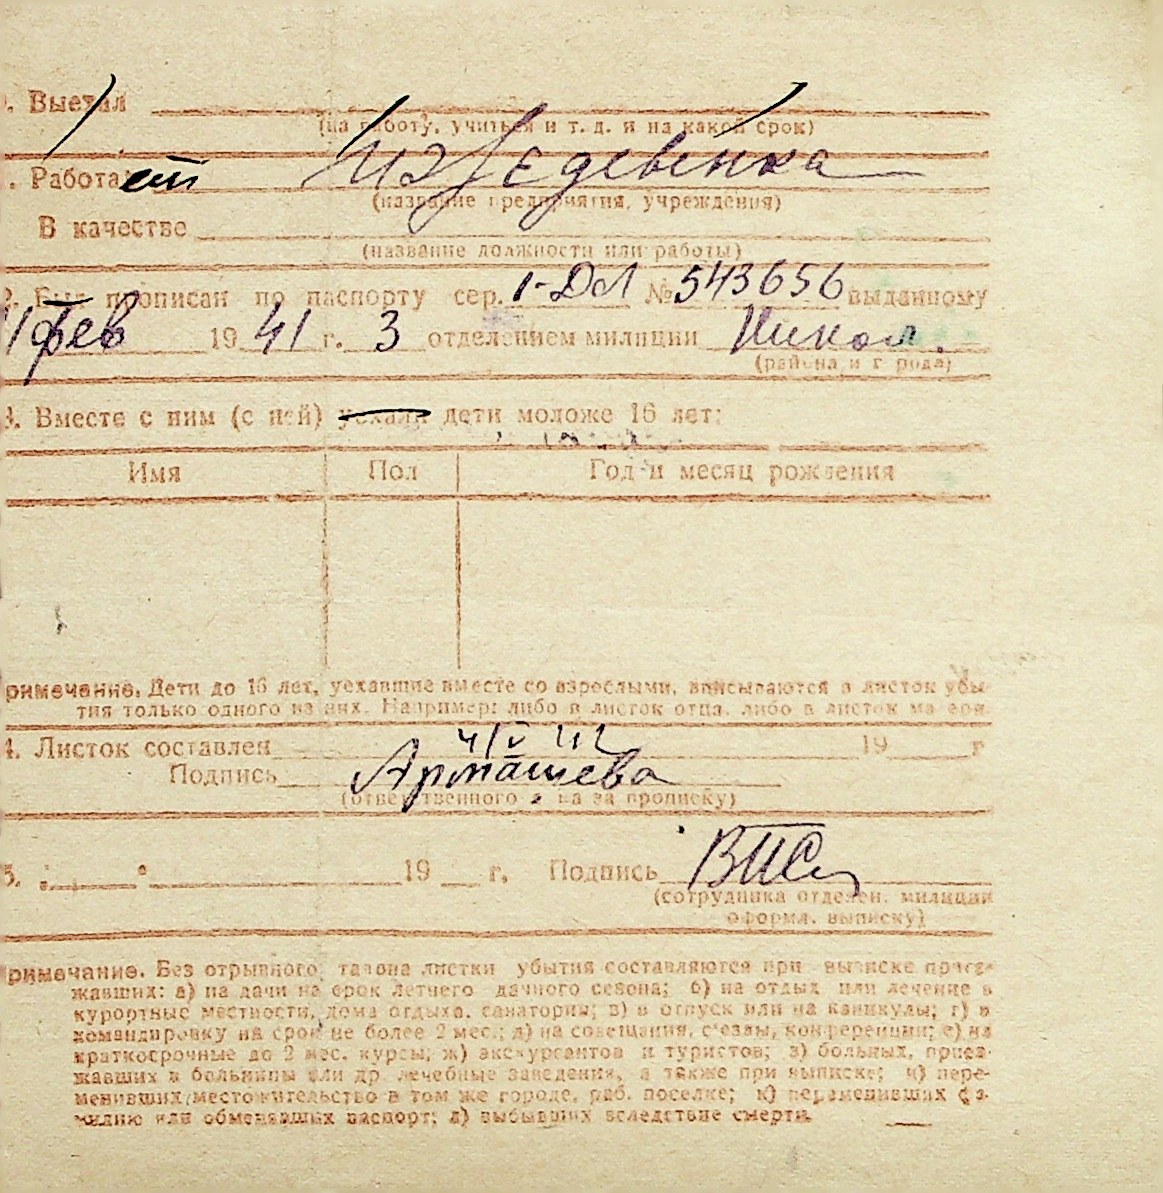 . Выехал
(на работу, учиться и т. д. и на какой срок)
. Работает Иждевенка
(название предприятия, учреждения)
В качестве
(название должности или работы)
2. Был прописан по паспорту сер. 1-ДЛ № 543656 выданному
фев 1941 г. 3 отделением милиции Никол.
(района и города)
3. Вместе с ним (с ней) уехали дети моложе 16 лет:
Имя Пол Год и месяц рождения
римечание. Дети до 16 лет, уехавшие вместе со взрослыми, вписываются в листок убы-
тия только одного из них. Например: либо в листок отца, либо в листок матери.
4. Листок составлен 4/V 19 г
Подпись Армашева
(ответственного за прописку)
5. " " 19 г. Подпись
(сотрудника отделен. милиции
оформл. выписку)
римечание. Без отрывного талона листки убытия составляются при выписке приез-
жавших: а) на дачи на срок летнего дачного сезона; б) на отдых или лечение в
курортные местности, дома отдыха, санатории; в) в отпуск или на каникулы; г) в
командировку на срок не более 2 мес.; д) на совещания, с'езды, конференции; е) на
краткосрочные до 2 мес. курсы; ж) экскурсантов и туристов; з) больных, приез-
жавших в больницы или др лечебные заведения, а также при выписке; и) пере-
менивших местожительство в том же городе, раб. поселке; к) переменивших фа-
милию или обменявших паспорт; л) выбывших вследствие смерти.